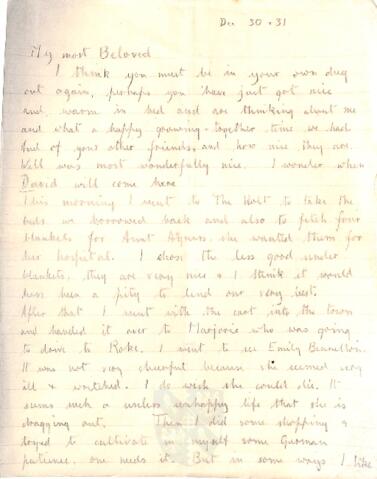 Dec 30. 31
My most Beloved
I think you must be in your own dug
out again, perhaps you have just got nice
and warm in bed and are thinking about me
and what a happy growing-together time we had
and of your other friends, and how nice they are.
Well was most wonderfully nice. I wonder when
David will come here
This morning I went to The Holt to take the
beds we borrowed back and also to fetch four
blankets for Aunt Agnes, she wanted them for
her hospital. I chose the less good under
blankets, they are very nice & I think it would
have been a pity to lend our very best.
After that I went with the cart into the town
and handed it over to Marjorie who was going
to drive to Roke. I went to see Emily
It was not very cheerful because she seemed very
ill & wretched. I do wish she could die. It
seems such a useless unhappy life that she is
dragging out. Then I did some shopping &
tryed to cultivate in myself some German
patience, one needs it. But in some ways I like